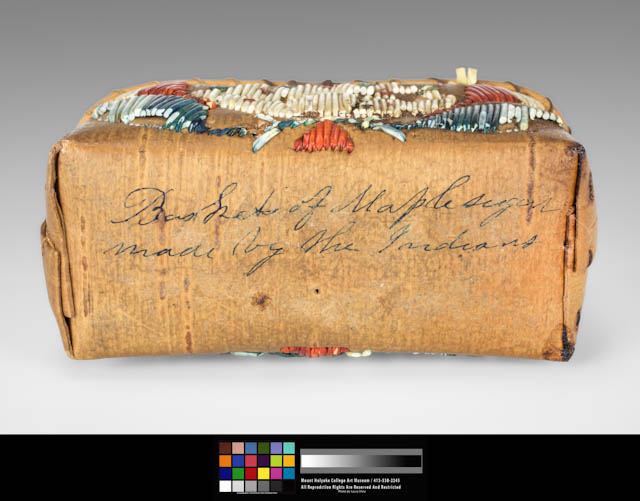 Basket of Maplesugar
made by the Indians
Mount Holyoke College Art Museum / 413-538-2245
All Reproduction Rights Are Reserved And Restricted